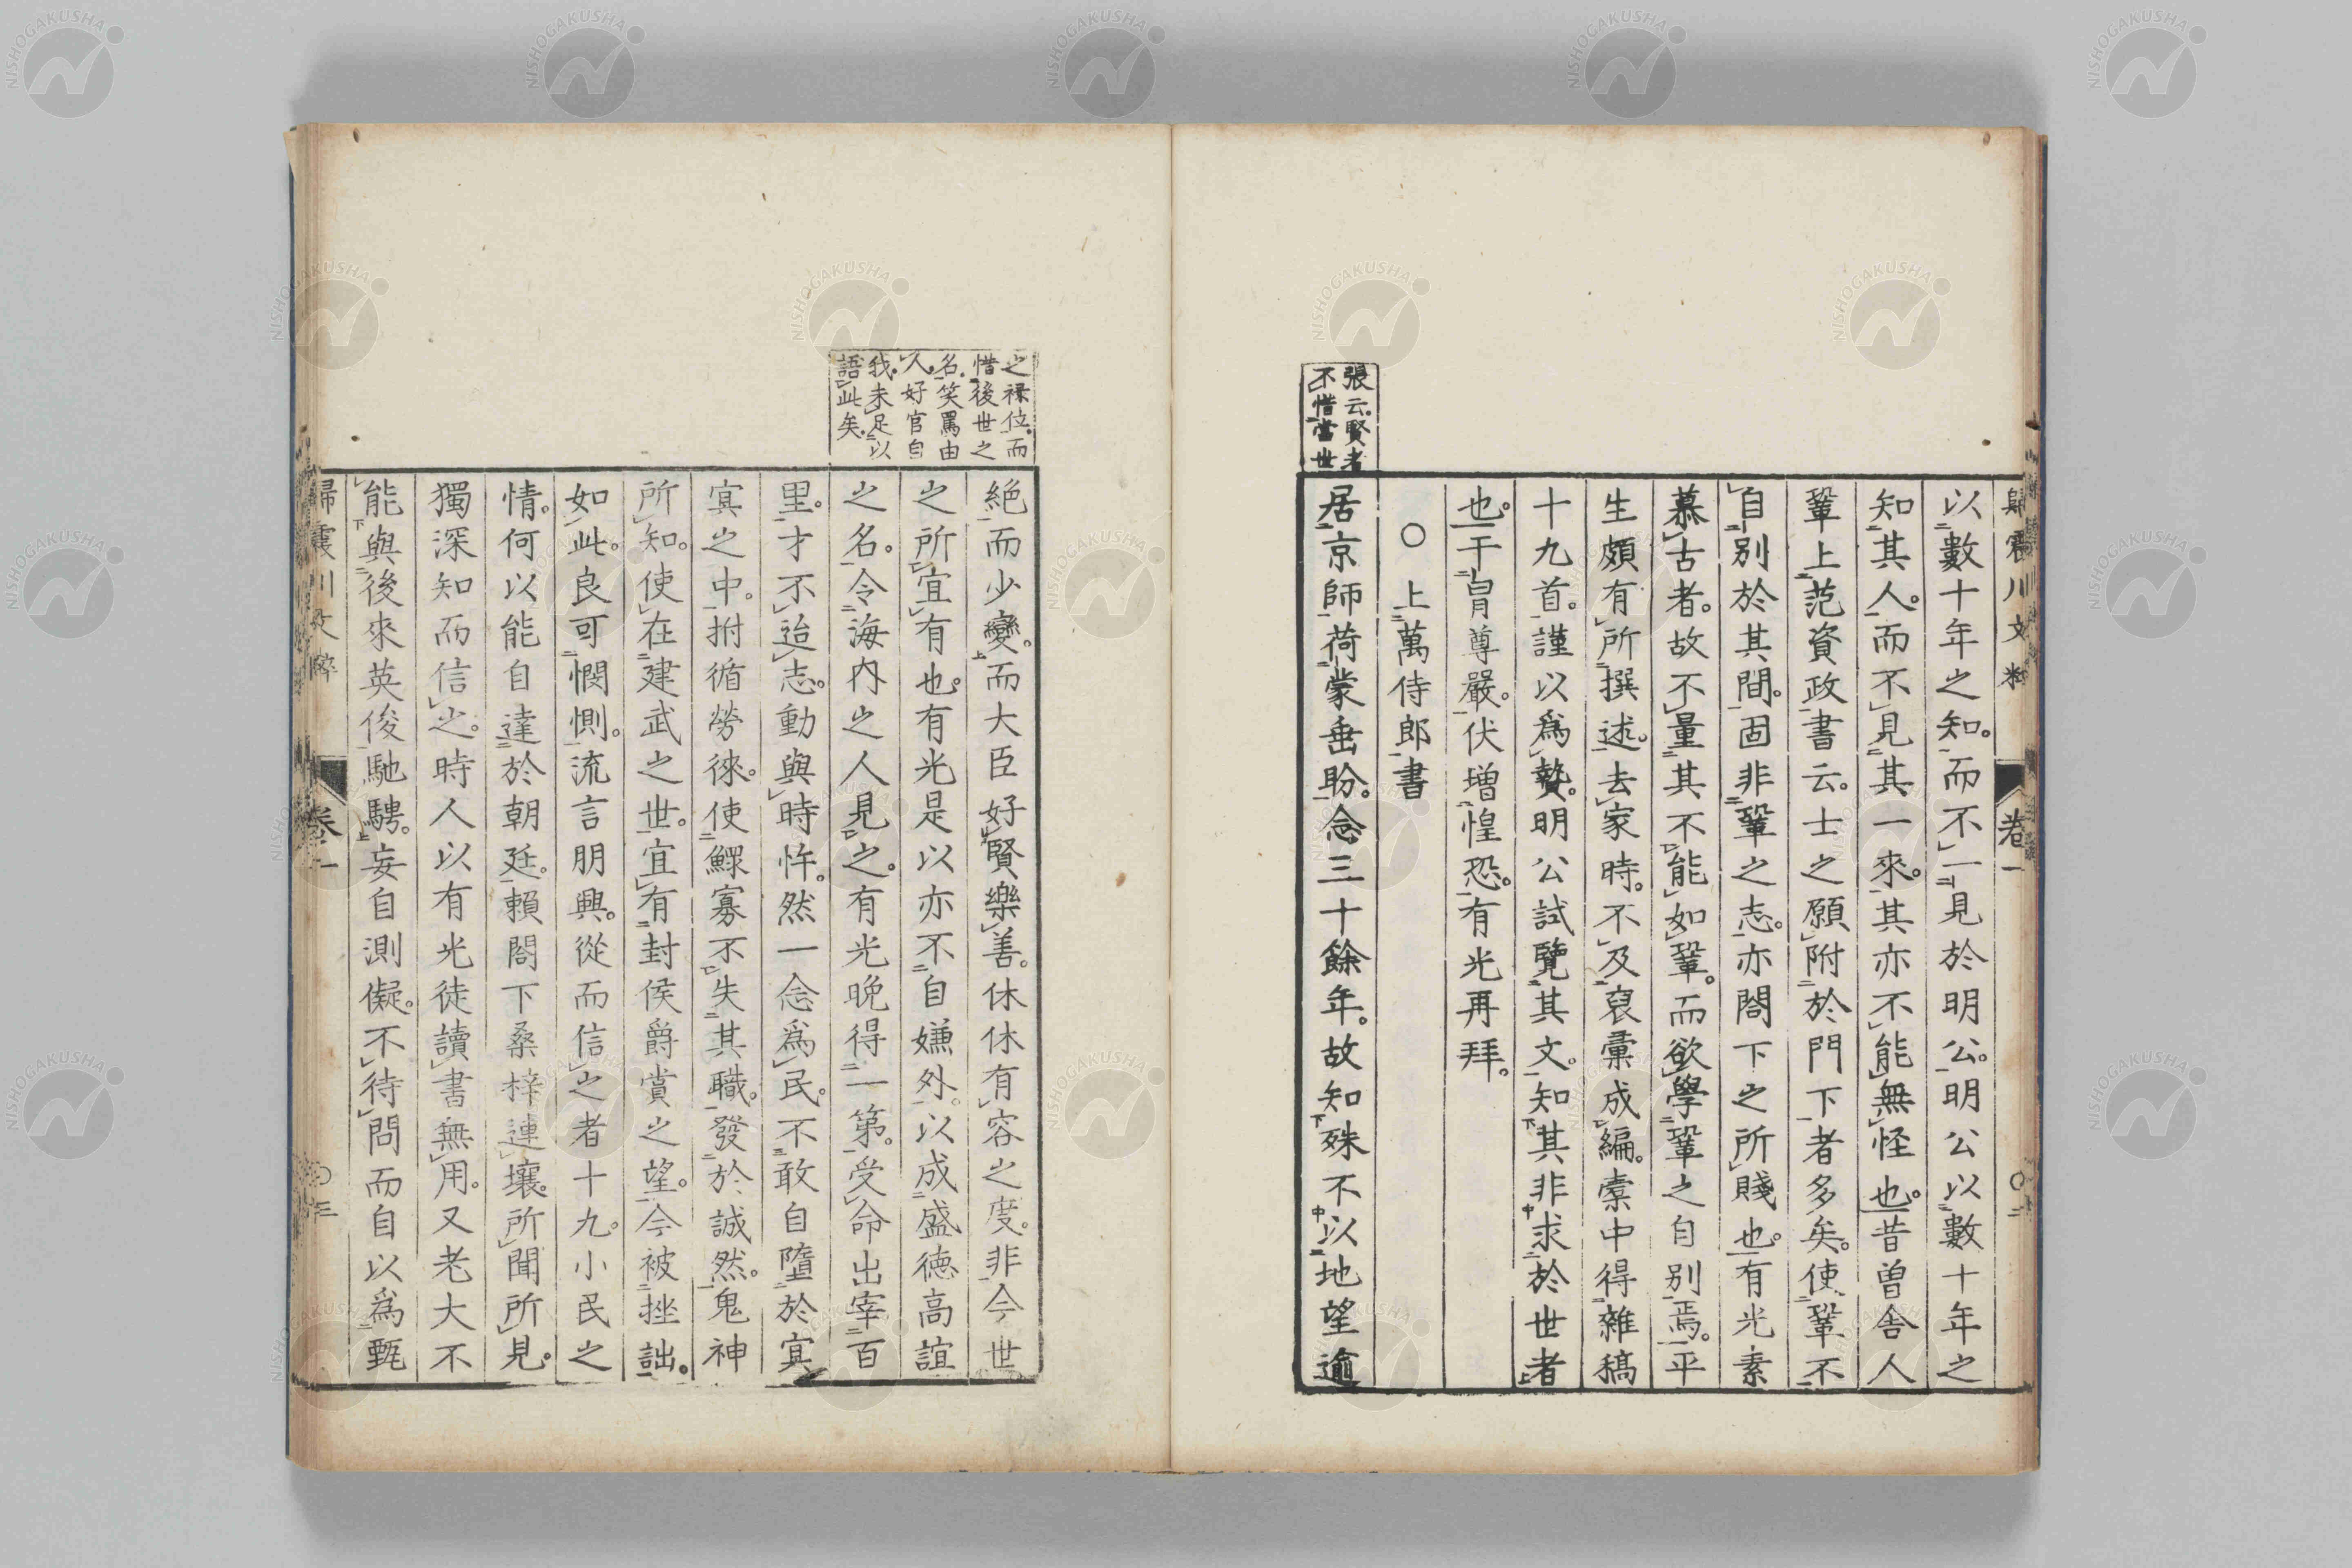 歸震川文粹 卷一 〇二
以數十年之知。而不一見於明公。明公以數十年之
知其人。而不見其一來。其亦不能無怪也。昔曾舍人
鞏上范資政書云。士之願附於門下者多矣。使鞏不
自別於其間。固非鞏之志。亦閤下之所賤也。有光素
慕古者。故不量其不能如鞏。而欲學鞏之自別焉。平
生頗有所撰述。去家時。不及裒彙成編。橐中得雜稿
十九首。謹以爲贄。明公試覽其文。知其非求於世者
也。干冒尊嚴。伏增惶恐。有光再拜。
〇上萬侍郎書
張云。賢者
不惜當世
居京師荷蒙垂盼。念三十餘年。故知殊不以地望逾
之祿位。而
惜後世之
名。笑罵由
人。好官自
我。未足以
語此矣。
絕而少變。而大臣好賢樂善。休休有容之度。非今世
之所宜有也。有光是以亦不自嫌外。以成盛德高誼
之名。令海内之人見之。有光晚得一第。受命出宰百
里。才不迨志。動與時忤。然一念爲民。不敢自墮於冥
冥之中。拊循勞徠。使鰥寡不失其職。發於誠然。鬼神
所知。使在建武之世。宜有封侯爵賞之望。今被挫詘。
如此。良可憫惻。流言朋興。從而信之者十九。小民之
情。何以能自達於朝廷。賴閤下桑梓連壤。所聞所見。
獨深知而信之。時人以有光徒讀書無用。又老大不
能與後來英俊馳騁。妄自測儗。不待問而自以爲甄
歸震川文粹 卷一 〇三
NISHOGAKUSHA